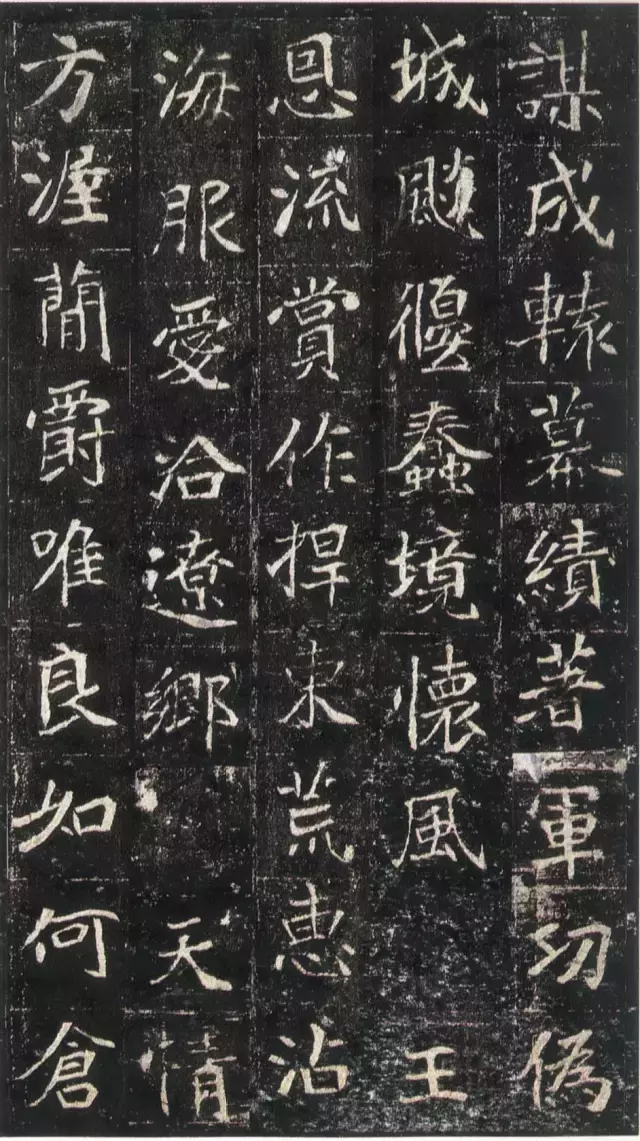 謀成轅幕績著一軍功偽
城颷偃蠢境懷風王
恩流賞作捍東荒惠沾
海服愛洽遼鄉天情
方渥簡爵唯良如何倉